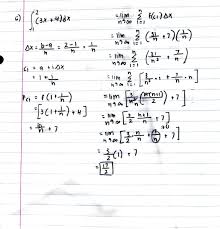 6) ∫₁² (3x+4)dx
Δx = b-a/n = 2-1/n = 1/n
Ci = a + iΔx
= 1 + i/n
f(1 + i/n)
= [3(1 + i/n) + 4]
= 3i/n + 7
= lim n→∞ Σ i=1 n f(Ci) Δx
= lim n→∞ Σ i=1 n (3i/n + 7)(1/n)
= lim n→∞ Σ i=1 n (3i/n² + 7/n)
= lim n→∞
= lim n→∞ [3/n² · n(n+1)/2 + 7]
= lim n→∞ [3/2 · n+1/n + 7]
= lim n→∞
= 3/2 (1) + 7
= 17/2